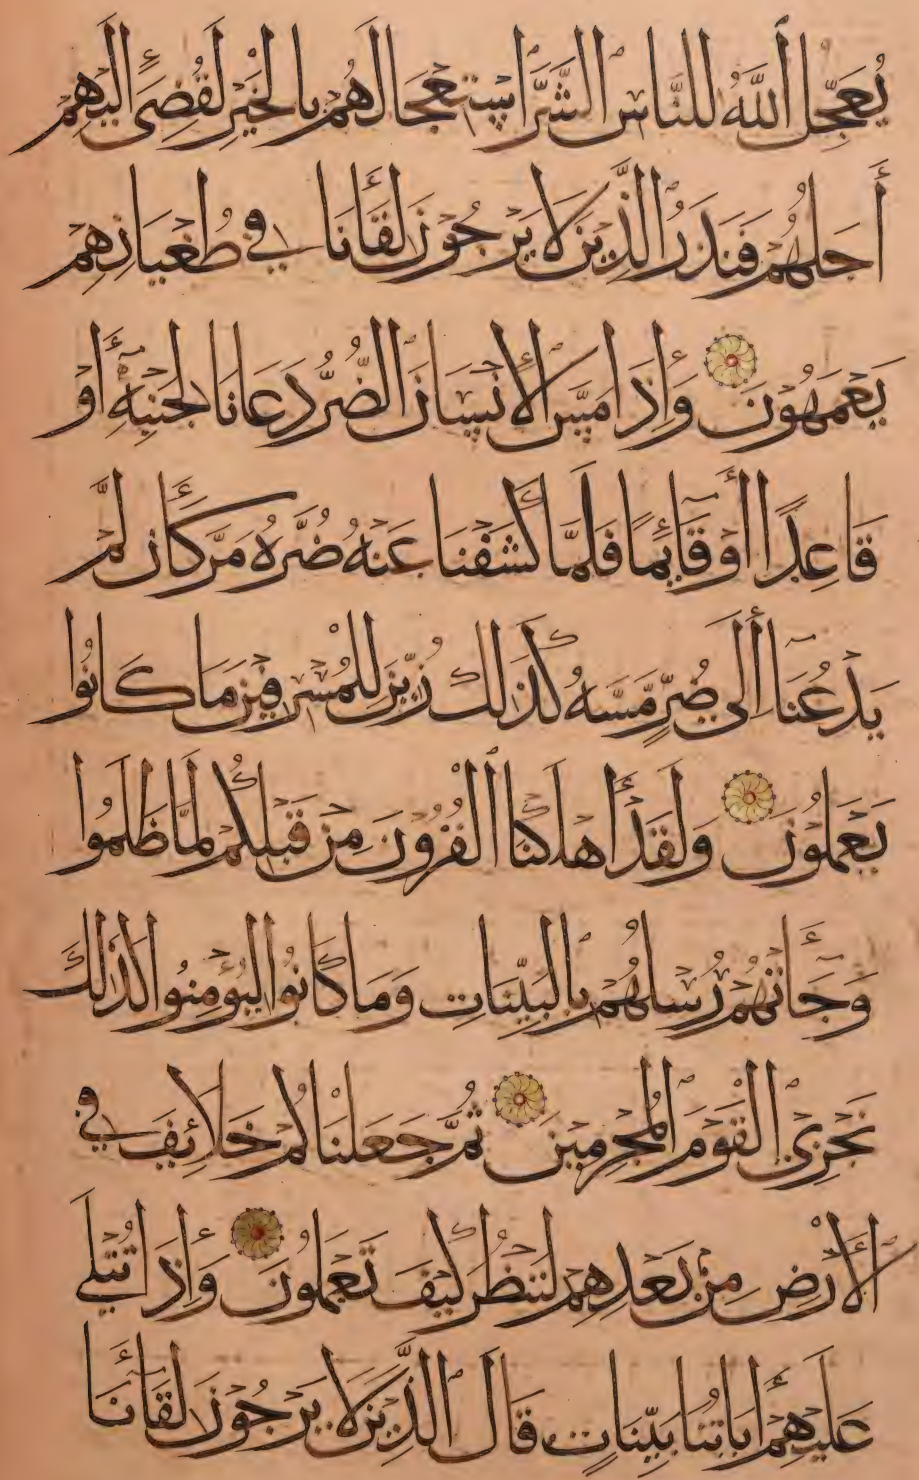 يُعَجِّلُ اللَّهُ لِلنَّاسِ الشَّرَّ اسْتِعْجَالَهُمْ بِالْخَيْرِ لَقُضِىَ إِلَيْهِمْ
أَجَلُهُمْ فَنَذَرُ الَّذِينَ لَا يَرْجُونَ لِقَآءَنَا فِي طُغْيَانِهِمْ
يَعْمَهُونَ وَإِذَا مَسَّ الْإِنْسَانَ الضُّرُّ دَعَانَا لِجَنْبِهِ أَوْ
قَاعِدًا أَوْ قَآئِمًا فَلَمَّا كَشَفْنَا عَنْهُ ضُرَّهُ مَرَّ كَأَنْ لَمْ
يَدْعُنَا إِلَى ضُرٍّ مَسَّهُ كَذَلِكَ زُيِّنَ لِلْمُسْرِفِينَ مَا كَانُوا
يَعْمَلُونَ وَلَقَدْ أَهْلَكْنَا الْقُرُونَ مِنْ قَبْلِكُمْ لَمَّا ظَلَمُوا
وَجَآءَتْهُمْ رُسُلُهُمْ بِالْبَيِّنَاتِ وَمَا كَانُوا لِيُؤْمِنُوا كَذَلِكَ
نَجْزِي الْقَوْمَ الْمُجْرِمِينَ ثُمَّ جَعَلْنَاكُمْ خَلَائِفَ فِي
الْأَرْضِ مِنْ بَعْدِهِمْ لِنَنْظُرَ كَيْفَ تَعْمَلُونَ وَإِذَا تُتْلَى
عَلَيْهِمْ آيَاتُنَا بَيِّنَاتٍ قَالَ الَّذِينَ لَا يَرْجُونَ لِقَآءَنَا